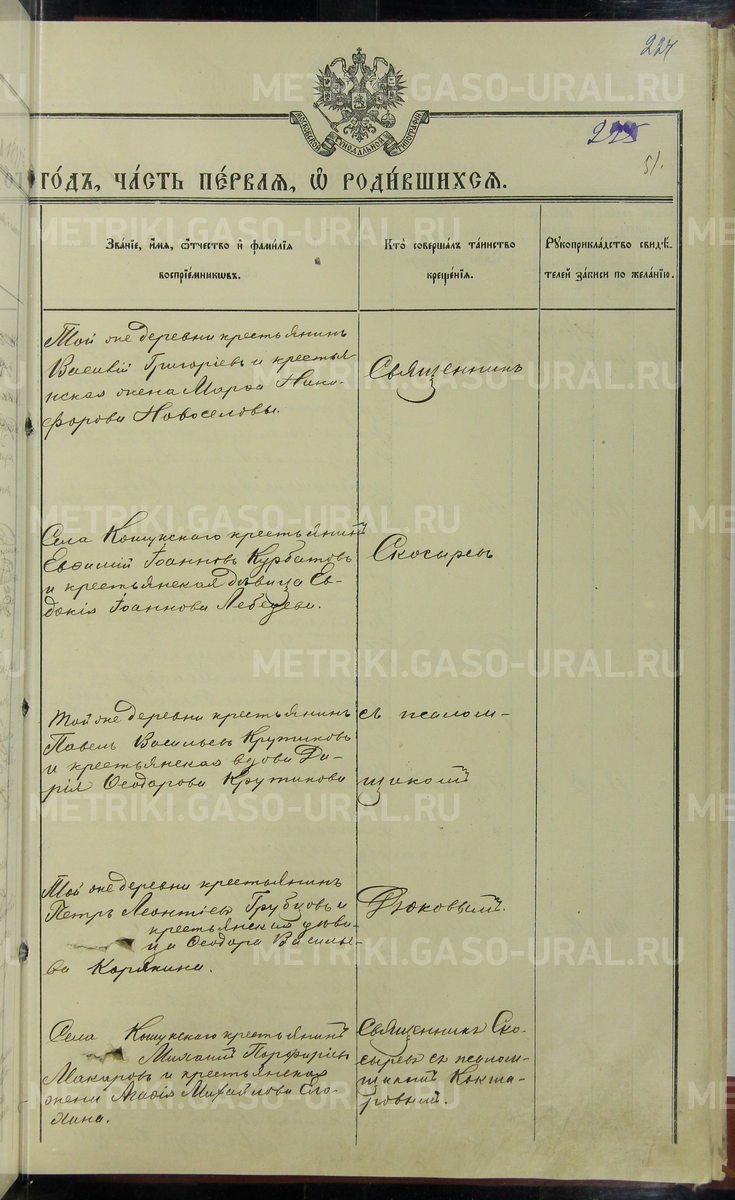 224
225
51.
МОСКОВСКОЙ СѴНОДАЛЬНОЙ ТИПОГРАФІИ
го́дъ, ча́сть пе́рваѧ, ѡ҆ роди́вшихсѧ.
Зва́нїе, и҆́мѧ, ѻ҆́тчество и҆ фами́лїѧ
воспрїе́мникѡвъ.
Кто̀ соверша́лъ та́инство
креще́нїѧ.
Рꙋкоприкла́дство свидѣ́-
телей за́писи по жела́нїю.
Той же деревни крестьянинъ
Василій Григоріевъ и крестья-
нская жена Марѳа Ники-
форова Новоселовы.
Священникъ
Села Кошукскаго крестьянинъ
Евѳимій Іоанновъ Курбатовъ
и крестьянская дѣвица Ев-
докія Іоаннова Лебедева.
Скосыревъ
Той же деревни крестьянинъ
Павелъ Васильевъ Крутиковъ
и крестьянская вдова Да-
рія Ѳеодорова Крутикова
съ псалом-
щикомъ
Той же деревни крестьянинъ
Петръ Леонтіевъ Грубцовъ и
крестьянская дѣви-
ца Ѳеодора Василье-
ва Корякина.
Дюковымъ.
Села Кошукскаго крестьянинъ
Михаилъ Порфиріевъ
Макаровъ и крестьянская
жена Агафія Михайлова Ело-
хина.
Священникъ Ско-
сыревъ съ псалом-
щикомъ Кокша-
ровымъ.
METRIKI.GASO-URAL.RU